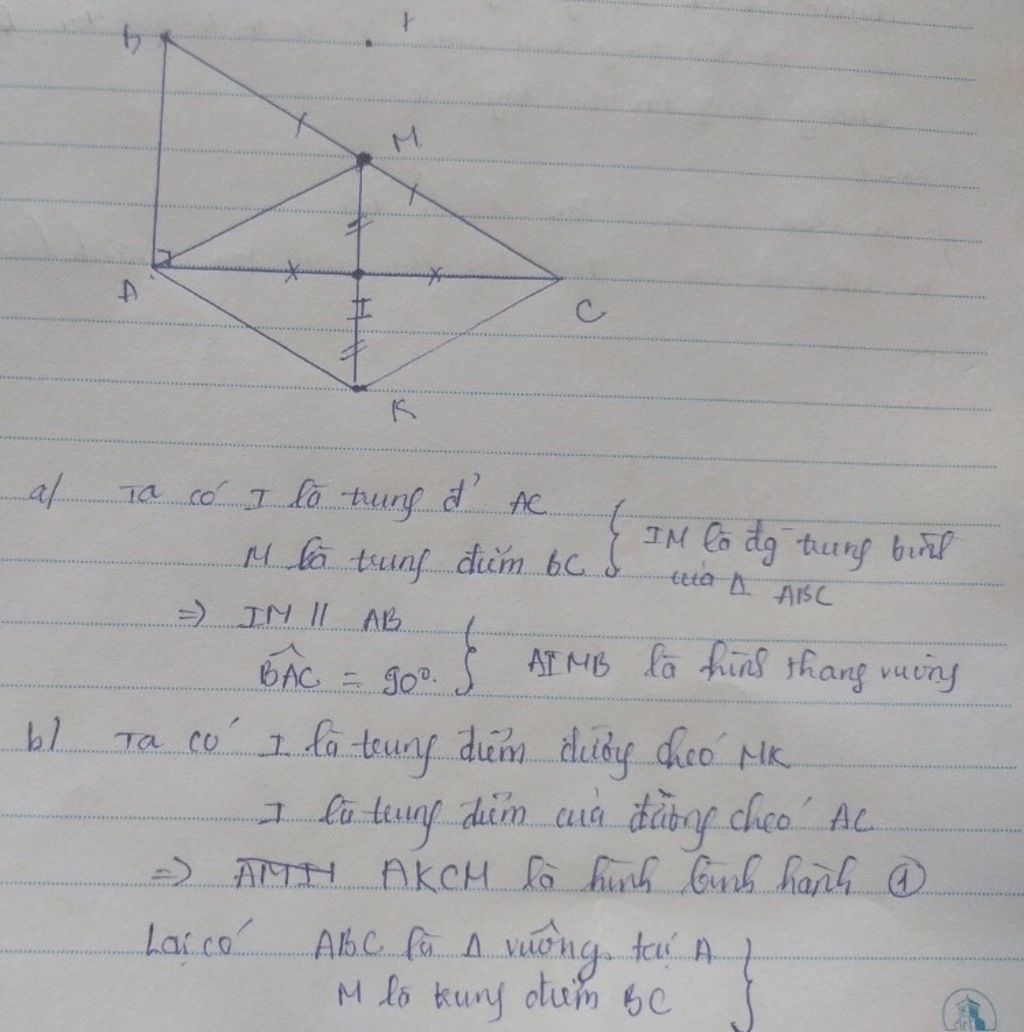 B
M
A
I
C
K
a/ Ta có I là trung đ' AC
M là trung điểm BC } IM là đg trung bình
của Δ ABC
=> IM // AB
BAC = 90°. } AIMB là hình thang vuông
b/ Ta có I là trung điểm đường chéo MK
I là trung điểm của đường chéo AC
=> AKCM là hình bình hành ①
Lại có ABC là Δ vuông tại A
M là trung điểm BC }